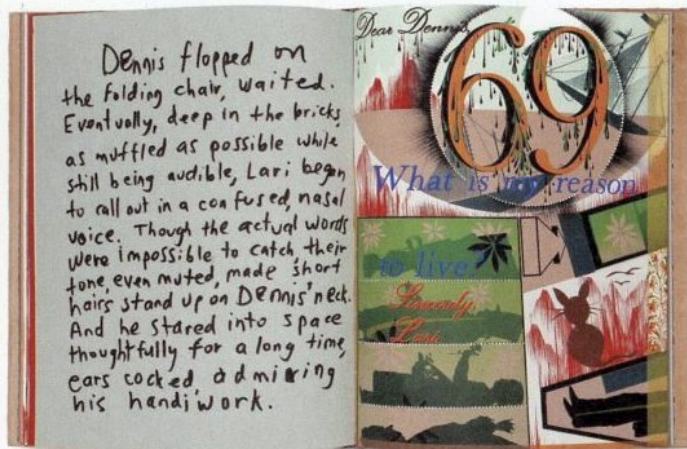 Dennis flopped on
the folding chair, waited.
Eventually, deep in the bricks,
as muffled as possible while
still being audible, Lari began
to call out in a confused, nasal
voice. Though the actual words
were impossible to catch their
tone, even muted, made short
hairs stand up on Dennis' neck.
And he stared into space
thoughtfully for a long time,
ears cocked admiring
his handiwork.
Dear Dennis,
69
What is my reason
to live?
Sincerely,
Lari